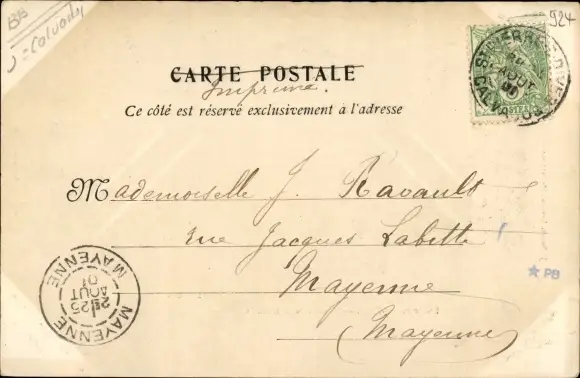 BB
Calvados
924
CARTE POSTALE
Imprimé.
Ce côté est réservé exclusivement à l'adresse
Mademoiselle J. Ravault
rue Jacques Labitte
Mayenne
(Mayenne)
ST PIERRE
AOUT
CALVADOS
MAYENNE
25
AOUT
01
MAYENNE
PB